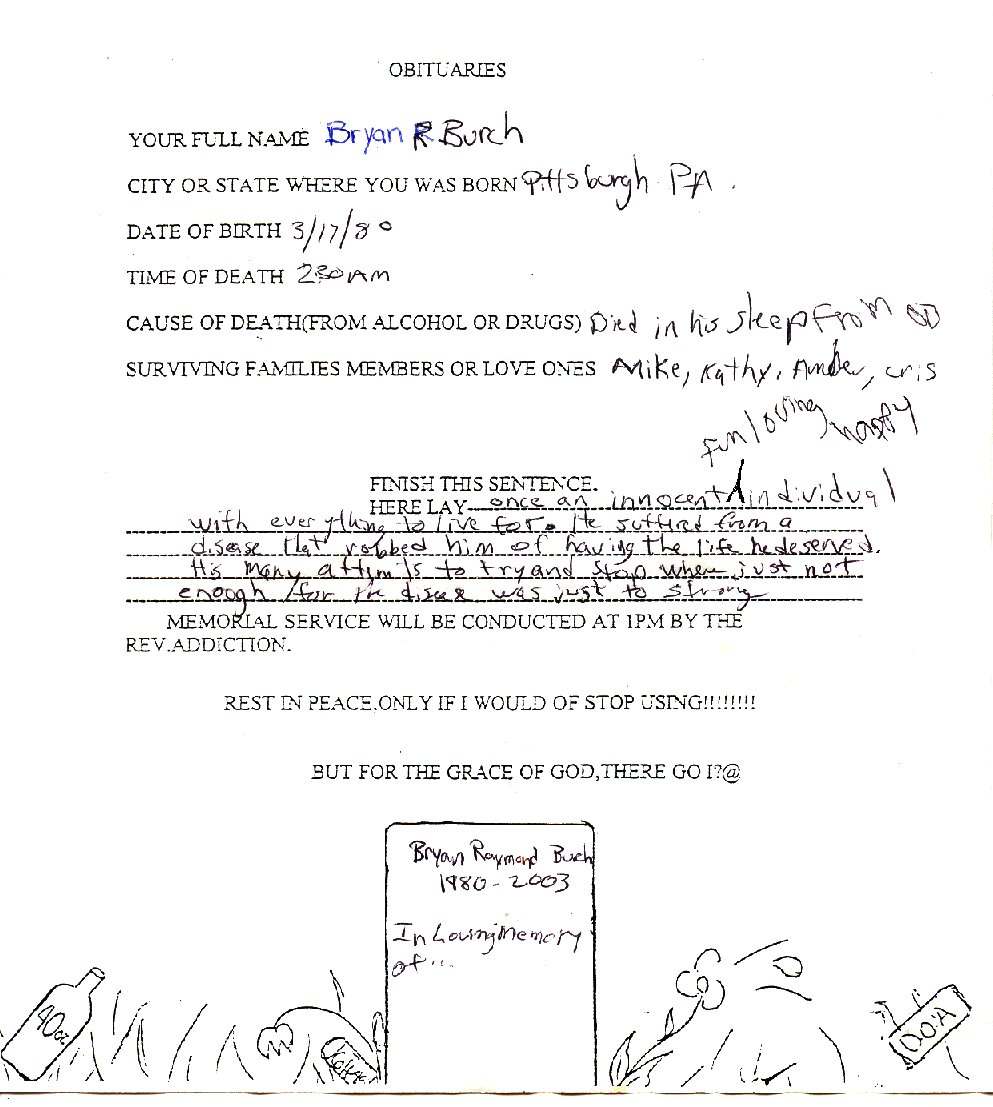 OBITUARIES
YOUR FULL NAME Bryan R Burch
CITY OR STATE WHERE YOU WAS BORN Pittsburgh PA.
DATE OF BIRTH 3/17/80
TIME OF DEATH 230 AM
CAUSE OF DEATH(FROM ALCOHOL OR DRUGS) Died in his sleep From OD
SURVIVING FAMILIES MEMBERS OR LOVE ONES Mike, Kathy, Amber, cris
fun loving,
FINISH THIS SENTENCE.
HERE LAY once an innocent / individual
with everything to live for. He suffired from a
disease that robbed him of having the life he deserved.
His many attem is to try and stop when just not
enough for the disease was just to strong
MEMORIAL SERVICE WILL BE CONDUCTED AT 1PM BY THE
REV.ADDICTION.
REST IN PEACE,ONLY IF I WOULD OF STOP USING!!!!!!!!
BUT FOR THE GRACE OF GOD,THERE GO I?@
Bryan Raymond Burch
1980-2003
In Loving Memory
of...
40oz
D.O.A